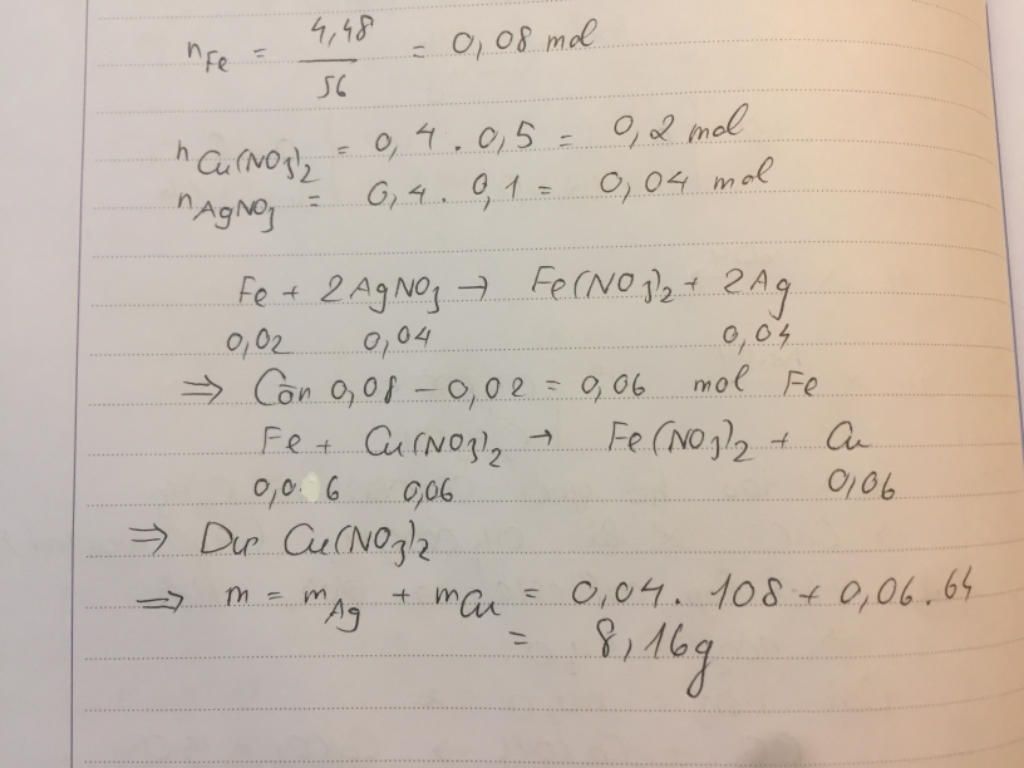 nFe = 4,48/56 = 0,08 mol
nCu(NO3)2 = 0,4 . 0,5 = 0,2 mol
nAgNO3 = 0,4 . 0,1 = 0,04 mol
Fe + 2AgNO3 → Fe(NO3)2 + 2Ag
0,02 0,04 0,04
⇒ Còn 0,08 - 0,02 = 0,06 mol Fe
Fe + Cu(NO3)2 → Fe(NO3)2 + Cu
0,06 0,06 0,06
⇒ Dư Cu(NO3)2
⇒ m = mAg + mCu = 0,04 . 108 + 0,06 . 64
= 8,16g